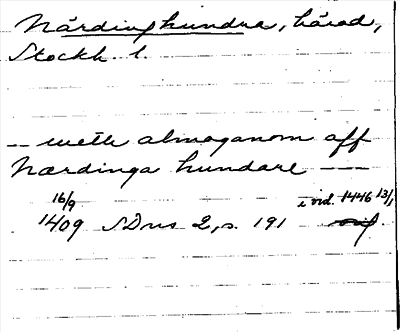 Närdinghundra, härad,
Stockh. l.
-- meth almoganom aff
Nærdinga hundare ---
16/9 i vid. 1446 13/1
1409 SDns 2, s. 191